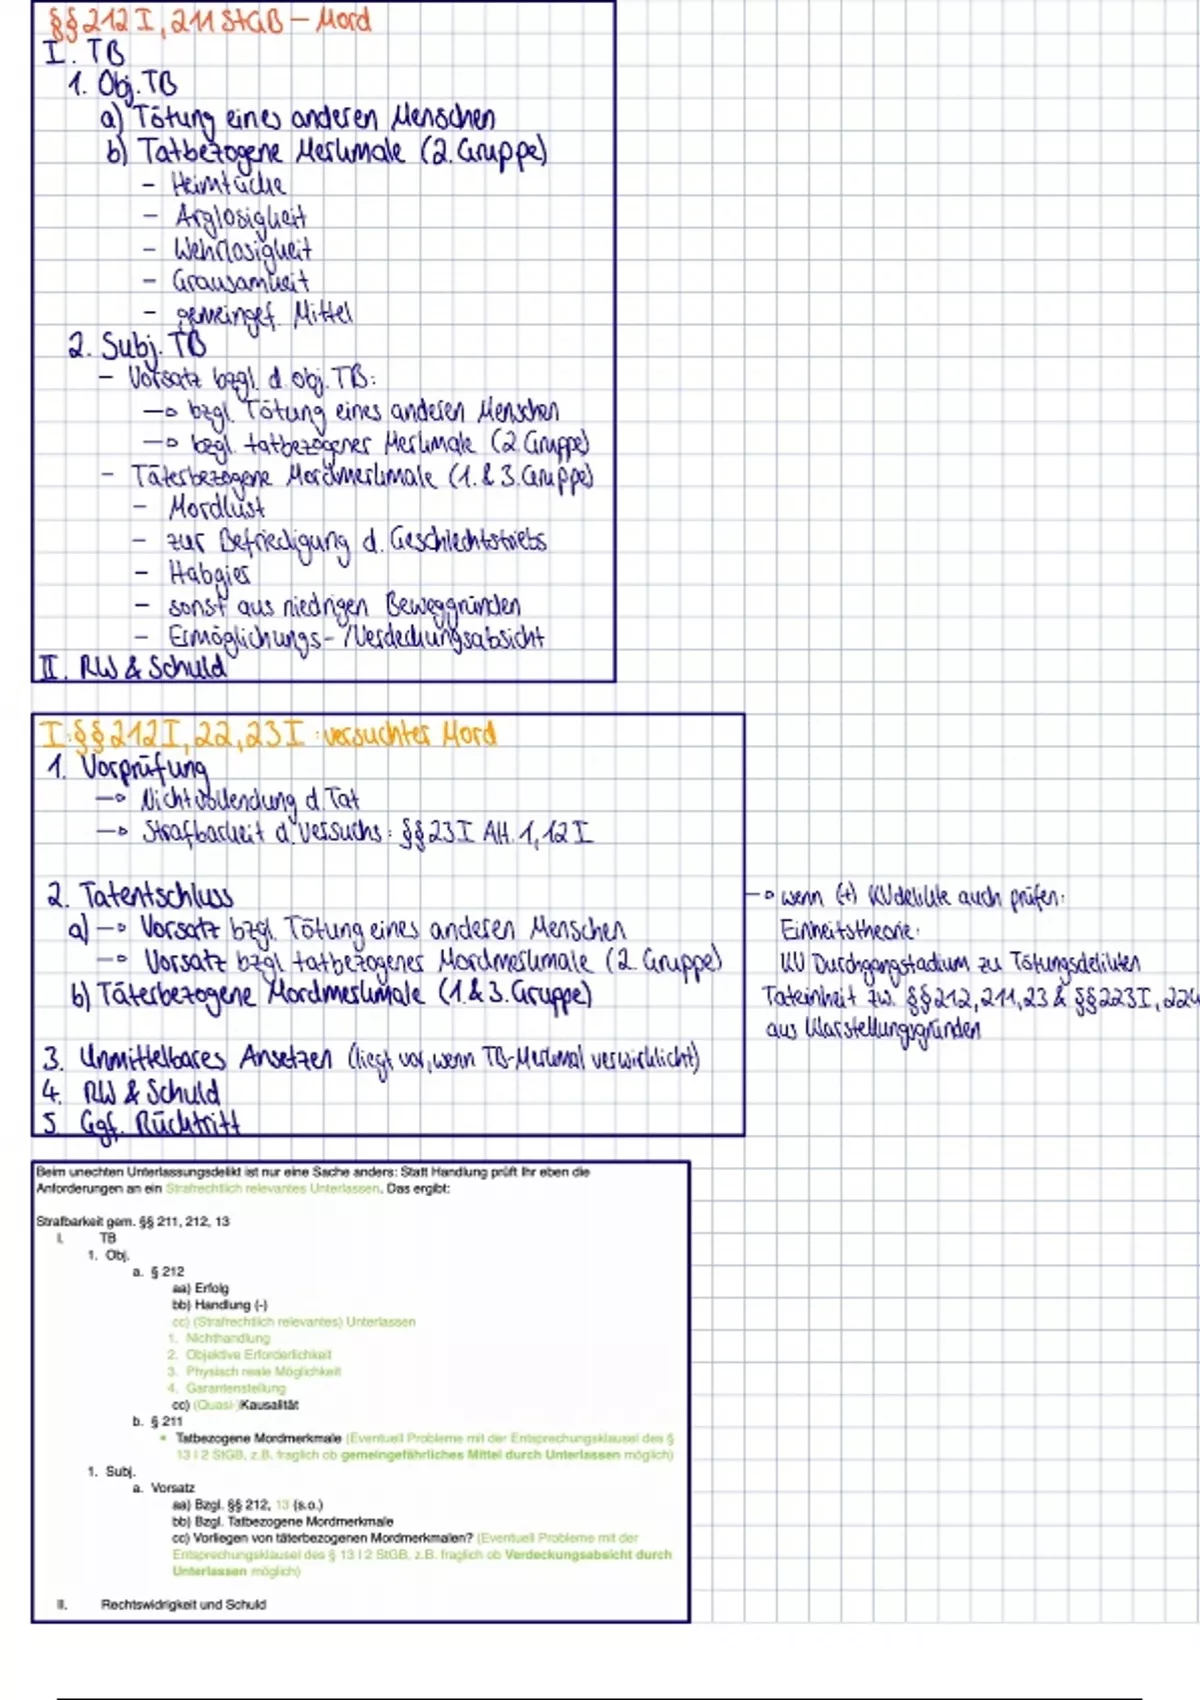 §§ 212 I, 211 StGB – Mord
I. TB
1. Obj. TB
a) Tötung eines anderen Menschen
b) Tatbezogene Merkmale (2. Gruppe)
– Heimtücke
– Arglosigkeit
– Wehrlosigkeit
– Grausamkeit
– gemeingef. Mittel
2. Subj. TB
– Vorsatz bzgl. d. obj. TB:
→ bzgl. Tötung eines anderen Menschen
→ bzgl. tatbezogener Merkmale (2. Gruppe)
– Täterbezogene Mordmerkmale (1. & 3. Gruppe)
– Mordlust
– zur Befriedigung d. Geschlechtstriebs
– Habgier
– sonst aus niedrigen Beweggründen
– Ermöglichungs- / Verdeckungsabsicht
II. RW & Schuld
I. §§ 212 I, 22, 23 I : versuchter Mord
1. Vorprüfung
→ Nichtvollendung d. Tat
→ Strafbarkeit d. Versuchs : §§ 23 I Alt. 1, 12 I
2. Tatentschluss
a) → Vorsatz bzgl. Tötung eines anderen Menschen
→ Vorsatz bzgl. tatbezogener Mordmerkmale (2. Gruppe)
b) Täterbezogene Mordmerkmale (1. & 3. Gruppe)
3. Unmittelbares Ansetzen (liegt vor, wenn TB-Merkmal verwirklicht)
4. RW & Schuld
5. Ggf. Rücktritt
→ wenn (+) KVdelikte auch prüfen:
Einheitstheorie:
KV Durchgangstadium zu Tötungsdelikten
Tateinheit zw. §§ 212, 211, 23 & §§ 223 I, 224
aus Klarstellungsgründen
Beim unechten Unterlassungsdelikt ist nur eine Sache anders: Statt Handlung prüft Ihr eben die
Anforderungen an ein Strafrechtlich relevantes Unterlassen. Das ergibt:
Strafbarkeit gem. §§ 211, 212, 13
I. TB
1. Obj.
a. § 212
aa) Erfolg
bb) Handlung (-)
cc) (Strafrechtlich relevantes) Unterlassen
1. Nichthandlung
2. Objektive Erforderlichkeit
3. Physisch reale Möglichkeit
4. Garantenstellung
cc) (Quasi-)Kausalität
b. § 211
• Tatbezogene Mordmerkmale (Eventuell Probleme mit der Entsprechungsklausel des §
13 I 2 StGB, z.B. fraglich ob gemeingefährliches Mittel durch Unterlassen möglich)
1. Subj.
a. Vorsatz
aa) Bzgl. §§ 212, 13 (s.o.)
bb) Bzgl. Tatbezogene Mordmerkmale
cc) Vorliegen von täterbezogenen Mordmerkmalen? (Eventuell Probleme mit der
Entsprechungsklausel des § 13 I 2 StGB, z.B. fraglich ob Verdeckungsabsicht durch
Unterlassen möglich)
II. Rechtswidrigkeit und Schuld